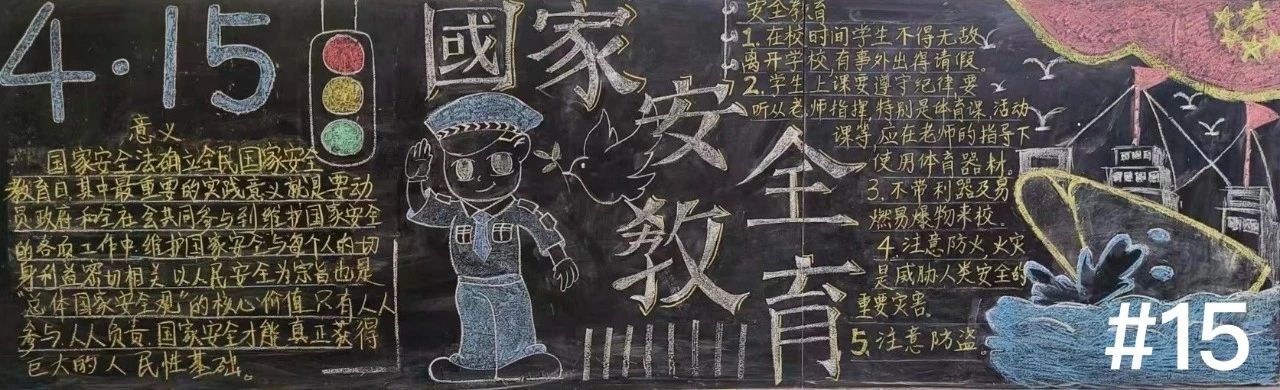 4·15
意义
国家安全法确立全民国家安全
教育日其中最重要的实践意义就是要动
员政府和全社会共同参与到维护国家安全
的各项工作中.维护国家安全与每个人的切
身利益密切相关.以人民安全为宗旨也是
“总体国家安全观”的核心价值.只有人人
参与.人人负责.国家安全才能真正获得
巨大的人民性基础。
國家安全教育
安全教育
1.在校时间学生不得无故
离开学校,有事外出得请假。
2.学生上课要遵守纪律,要
听从老师指挥,特别是体育课,活动
课等,应在老师的指导下
使用体育器材。
3.不带利器及易
燃易爆物来校.
4.注意防火,火灾
是威胁人类安全的
重要灾害.
5.注意防盗.
#15